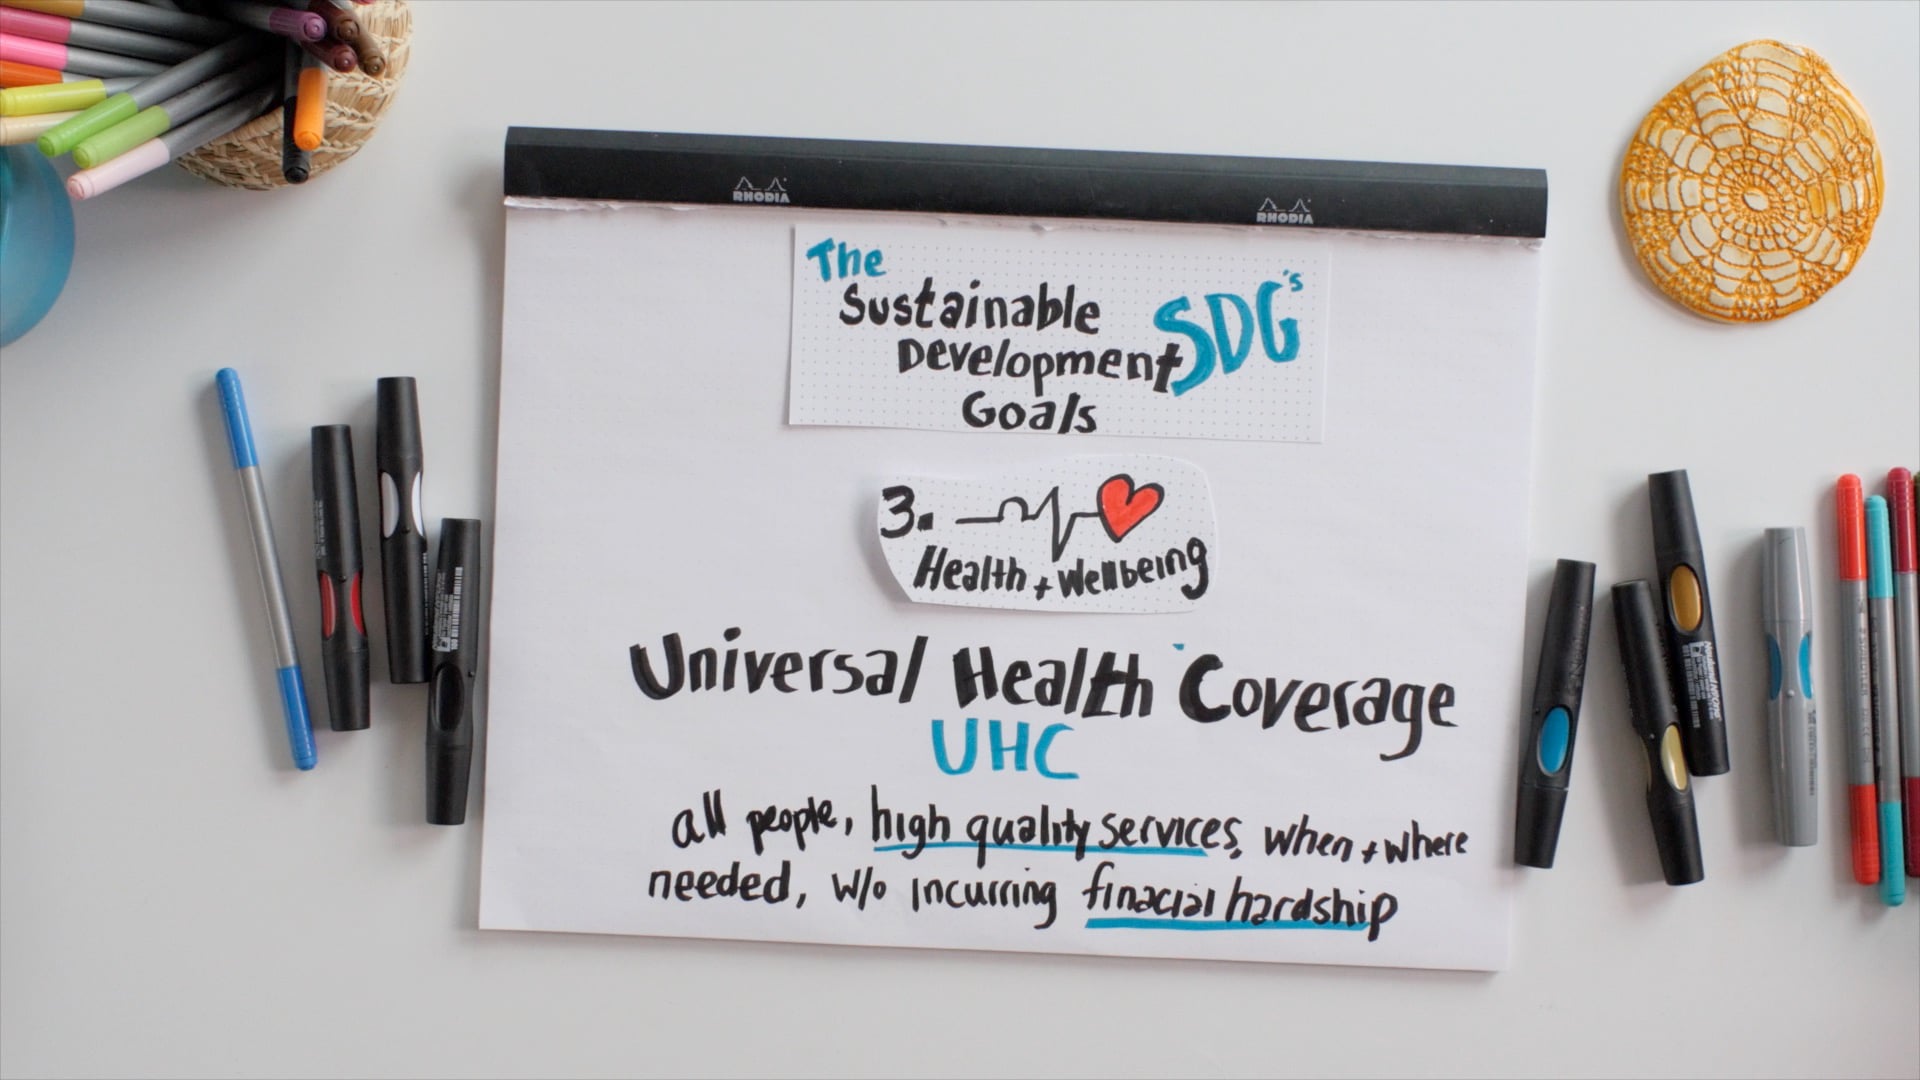 RHODIA
RHODIA
The
Sustainable
Development
Goals
SDG's
3.
Health + Wellbeing
Universal Health Coverage
UHC
all people, high quality services, when + where
needed, w/o incurring finacial hardship